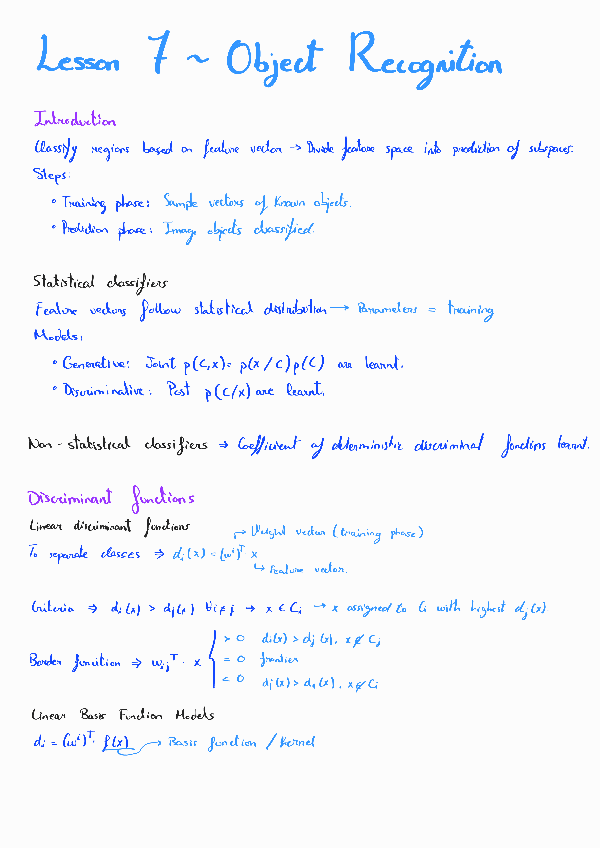 Lesson 7 ~ Object Recognition
Introduction
Classify regions based on feature vector -> Divide feature space into prediction of subspaces.
Steps.
• Training phase: Sample vectors of known objects.
• Prediction phase: Image objects classified.
Statistical classifiers
Feature vectors follow statistical distribution → Parameters = training
Models:
• Generative: Joint p(C,x)= p(x/C)p(C) are learnt.
• Discriminative: Post p(C/x) are learnt.
Non-statistical classifiers ⇒ Coefficient of deterministic discriminal functions learnt.
Discriminant functions
Linear discriminant functions
→ Weight vector (training phase)
To separate classes ⇒ di(x) = (wⁱ)ᵀ x
↳ Feature vector.
Criteria ⇒ di(x) > dj(x) ∀i≠j → x ∈ Ci → x assigned to Ci with highest dj(x)
> 0 di(x) > dj(x), x∉Cj
Border function ⇒ wijᵀ · x = 0 frontier
= 0 dj(x) > di(x), x∉Ci
Linear Basis Function Models
di = (wⁱ)ᵀ · f(x) → Basis function / Kernel